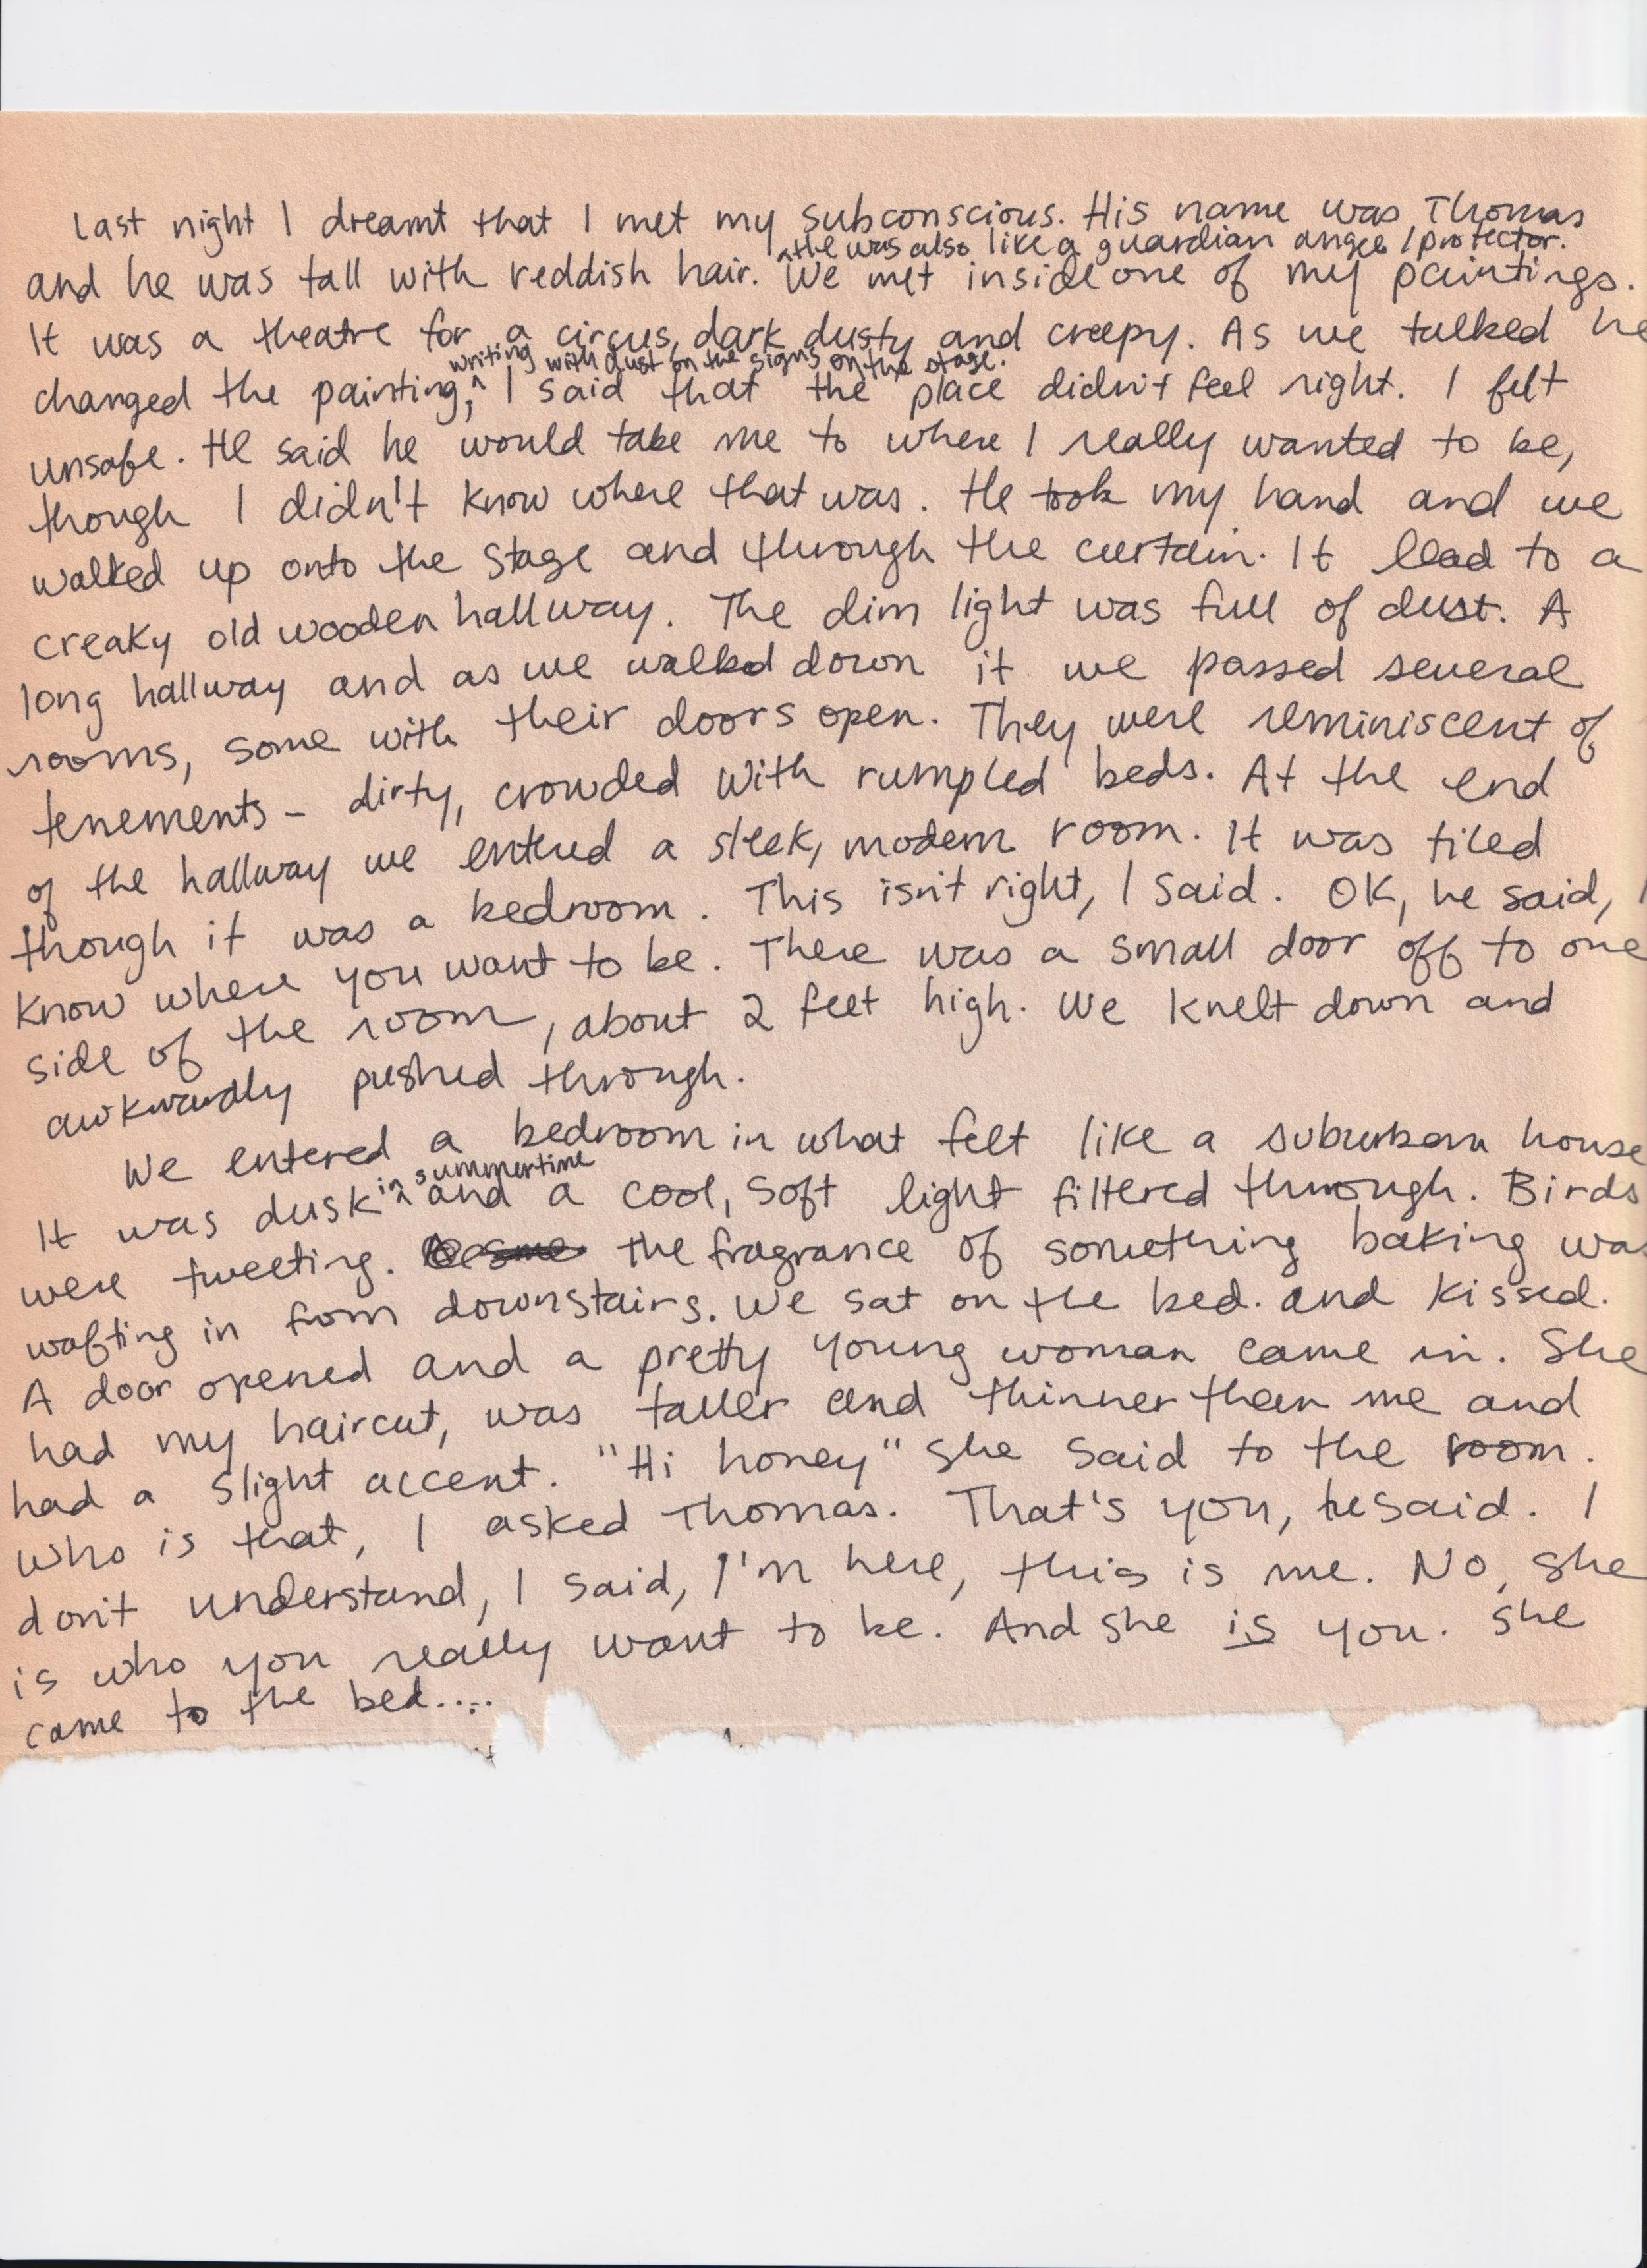 Last night I dreamt that I met my subconscious. His name was Thomas
He was also like a guardian angel / protector.
and he was tall with reddish hair. ^ We met inside one of my paintings.
It was a theatre for a circus, dark dusty and creepy. As we talked he
writing with dust on the signs on the stage.
changed the painting, ^ I said that the place didn't feel right. I felt
unsafe. He said he would take me to where I really wanted to be,
though I didn't know where that was. He took my hand and we
walked up onto the stage and through the curtain. It lead to a
creaky old wooden hallway. The dim light was full of dust. A
long hallway and as we walked down it we passed several
rooms, some with their doors open. They were reminiscent of
tenements - dirty, crowded with rumpled beds. At the end
of the hallway we entered a sleek, modern room. It was tiled
though it was a bedroom. This isn't right, I said. OK, he said, I
know where you want to be. There was a small door off to one
side of the room, about 2 feet high. We knelt down and
awkwardly pushed through.
We entered a bedroom in what felt like a suburban house
in summertime
It was dusk ^ and a cool, soft light filtered through. Birds
were tweeting. the fragrance of something baking was
wafting in from downstairs. We sat on the bed. and kissed.
A door opened and a pretty young woman came in. She
had my haircut, was taller and thinner than me and
had a slight accent. "Hi honey" she said to the room.
Who is that, I asked Thomas. That's you, he said. I
don't understand, I said, I'm here, this is me. No, she
is who you really want to be. And she is you. She
came to the bed....